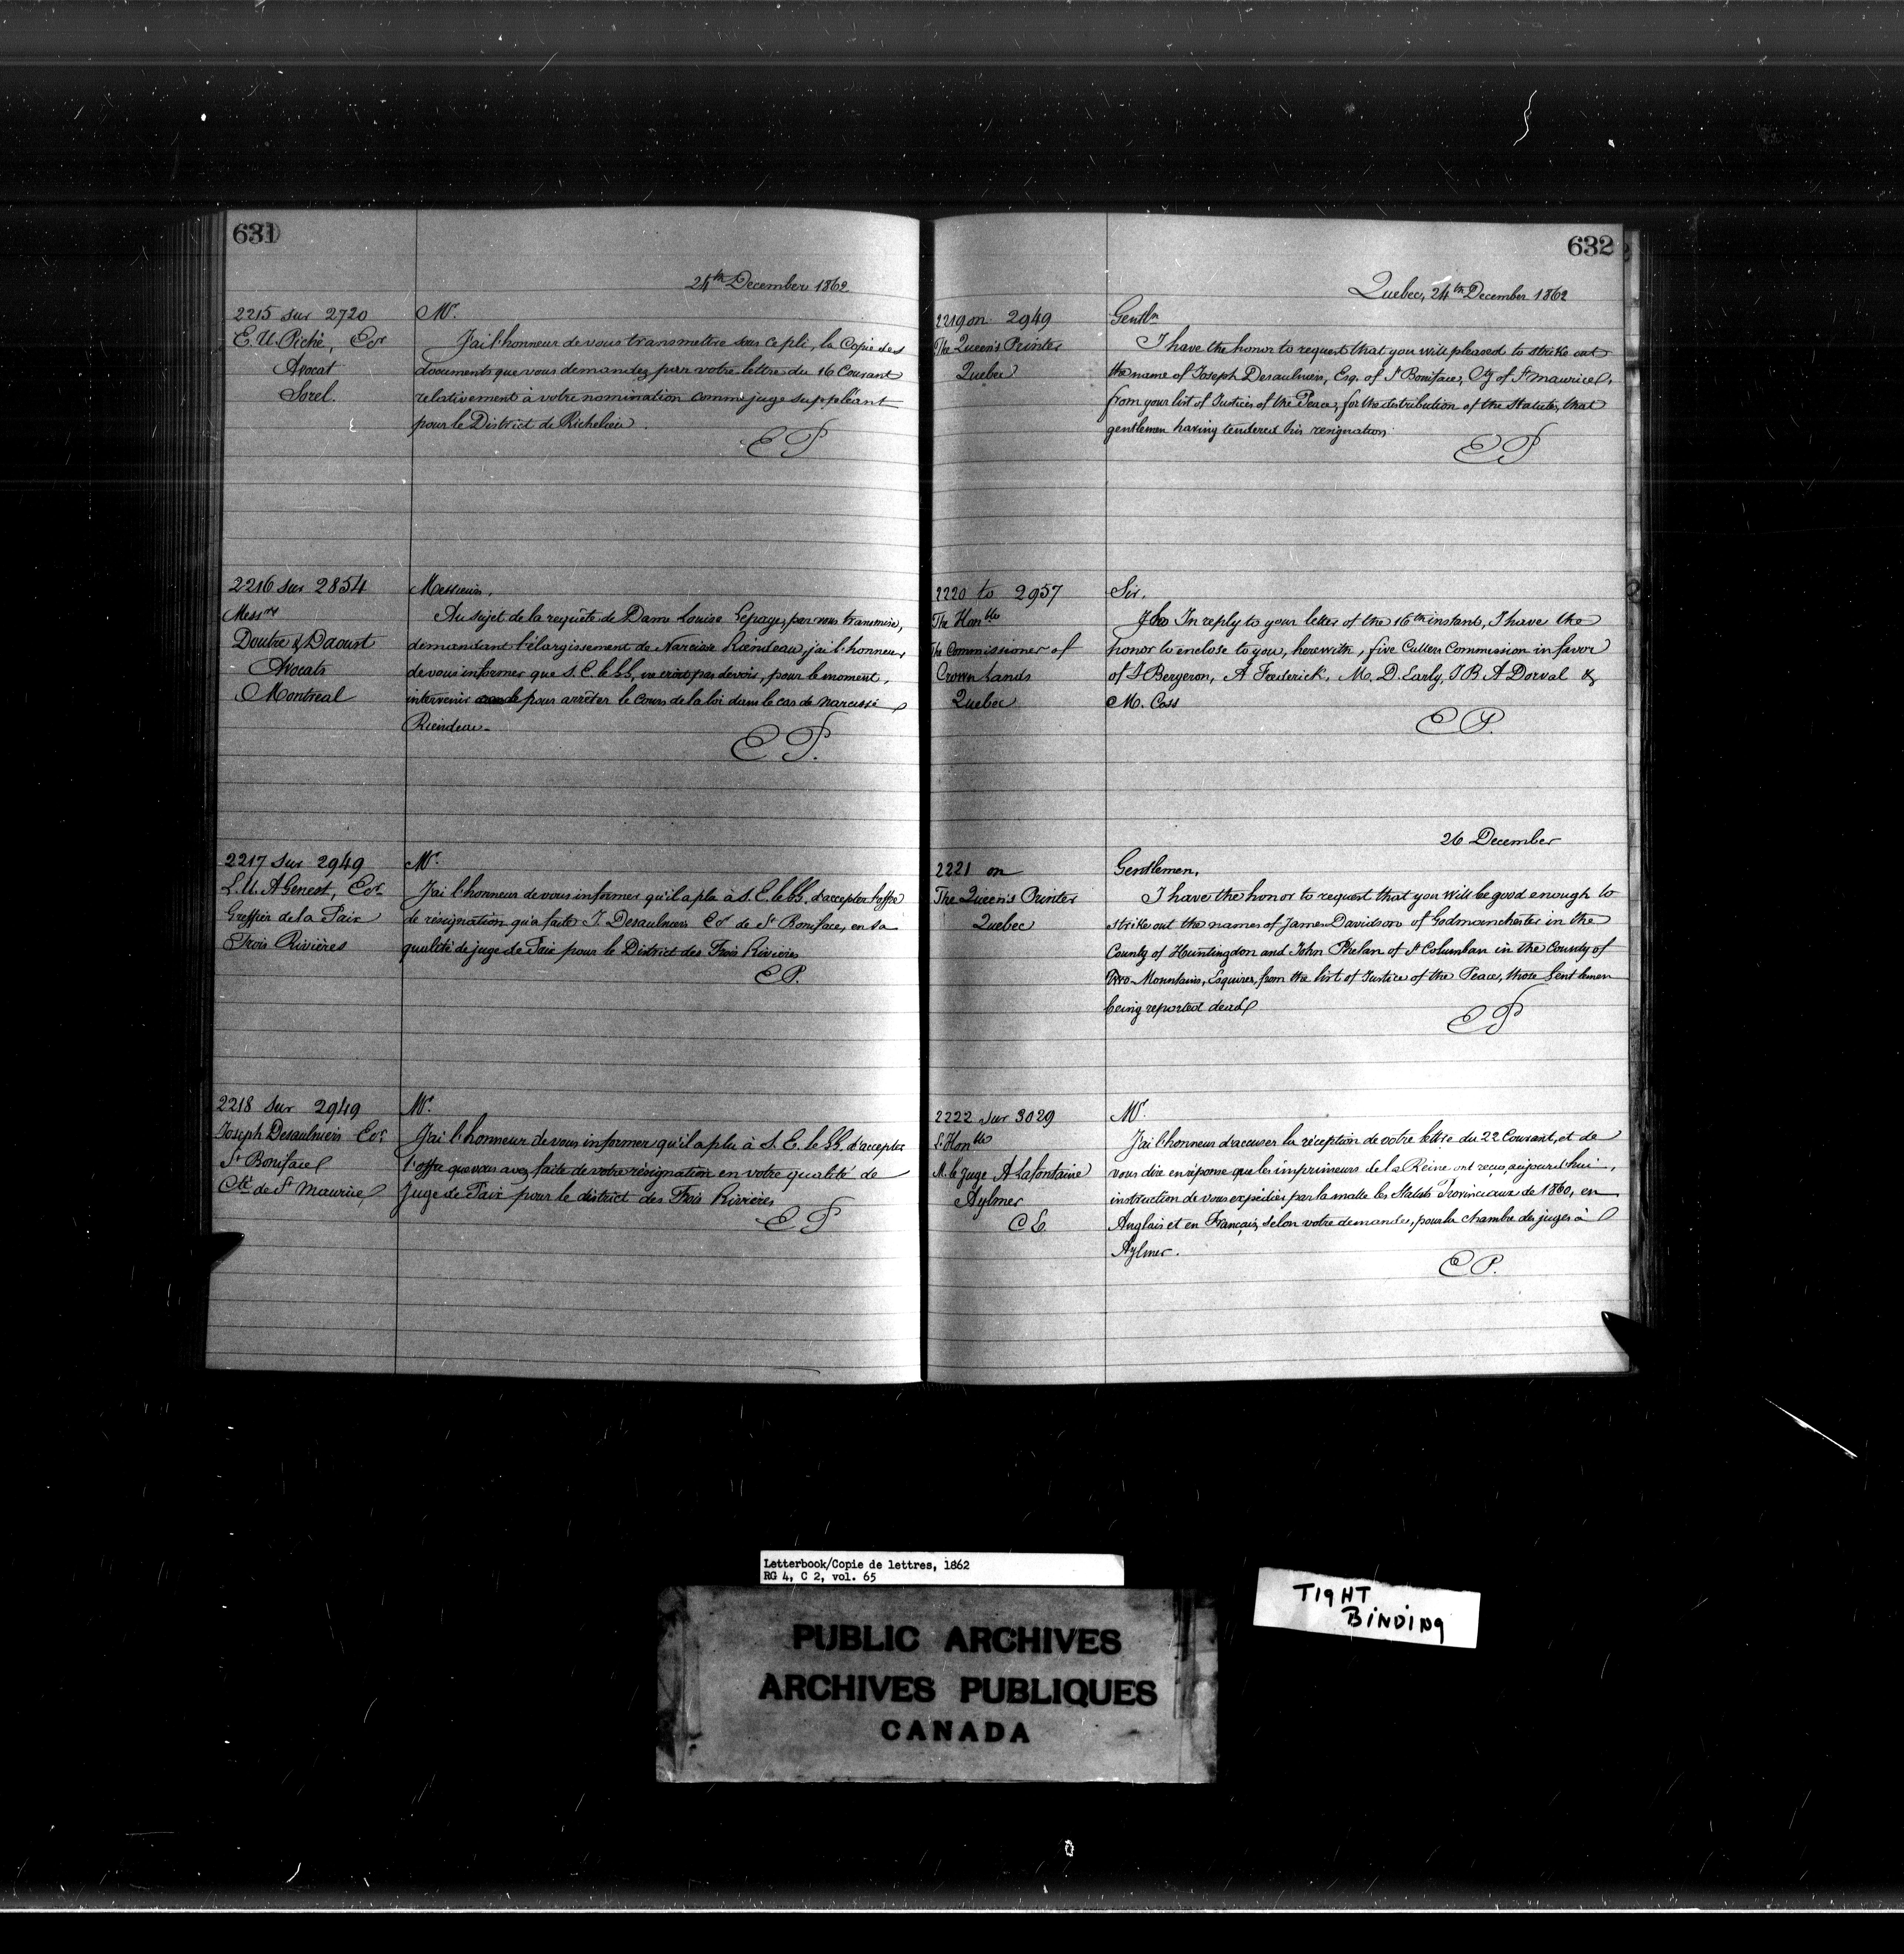 631
24th December 1862
2215 sur 2720
E. U. Piché, Ecr
Avocat
Sorel.
Mr.
J'ai l'honneur de vous transmettre sous ce pli, la Copie des
documents que vous demandez par votre lettre du 16 Courant
relativement à votre nomination comme juge suppléant
pour le District de Richelieu.
EP
2216 sur 2854
Messrs
Doutre & Daoust
Avocats
Montreal
Messieurs,
Au sujet de la requête de Dame Louise Lepage, par vous transmise,
demandant l'élargissement de Narcisse Riendeau, j'ai l'honneur
de vous informer que S. E. le G.G. ne croit pas devoir, pour le moment,
intervenir pour arrêter le cours de la loi dans le cas de narcisse
Riendeau.
EP.
2217 sur 2949
L. U. A Genest, Ecr
Greffier de la Paix
Trois Rivières
Mr.
J'ai l'honneur de vous informer qu'il a plu à S. E. le G.G. d'accepter l'offre
de résignation qu'a faite J. Desaulniers Ecr de St Boniface, en sa
qualité de juge de Paix pour le District des Trois Rivières
EP.
2218 sur 2949
Joseph Desaulniers Ecr
St Boniface
Cté de St Maurice
Mr.
J'ai l'honneur de vous informer qu'il a plu à S. E. le G.G. d'accepter
l'offre que vous avez faite de votre résignation en votre qualité de
Juge de Paix pour le district des Trois Rivières
EP
632
Quebec, 24th December 1862
2219 on 2949
The Queen's Printer
Quebec
Gentln
I have the honor to request that you will pleased to strike out
the name of Joseph Desaulniers, Esq. of St Boniface, Cty of St Maurice,
from your list of Justices of the Peace, for the distribution of the Statutes, that
gentlemen having tendered his resignation
EP
2220 to 2957
The Honble
The Commissioner of
Crown Lands
Quebec
Sir,
In reply to your letter of the 16th instant, I have the
honor to enclose to you, herewith, five Cullers Commission in favor
of J Bergeron, A Frederick, M. D. Early, J B A Dorval &
M. Coss
EP.
26 December
2221 on
The Queen's Printer
Quebec
Gentlemen,
I have the honor to request that you will be good enough to
strike out the names of James Davidson of Godmanchester in the
County of Huntingdon and John Phelan of St Columban in the County of
Two-Mountains, Esquires, from the list of Justice of the Peace, those Gentlemen
being reported dead
EP
2222 sur 3029
L'Honble
M. le juge A Lafontaine
Aylmer
C E
Mr.
J'ai l'honneur d'accuser la réception de votre lettre du 22 Courant, et de
vous dire en réponse que les imprimeurs de la Reine ont reçu, aujourd'hui,
instruction de vous expédier par la malle les Statuts Provinciaux de 1860, en
Anglais et en Français, selon votre demande, pour la chambre des juges à
Aylmer.
EP.
Letterbook/Copie de lettres, 1862
RG 4, C 2, vol. 65
TIGHT
BINDING
PUBLIC ARCHIVES
ARCHIVES PUBLIQUES
CANADA